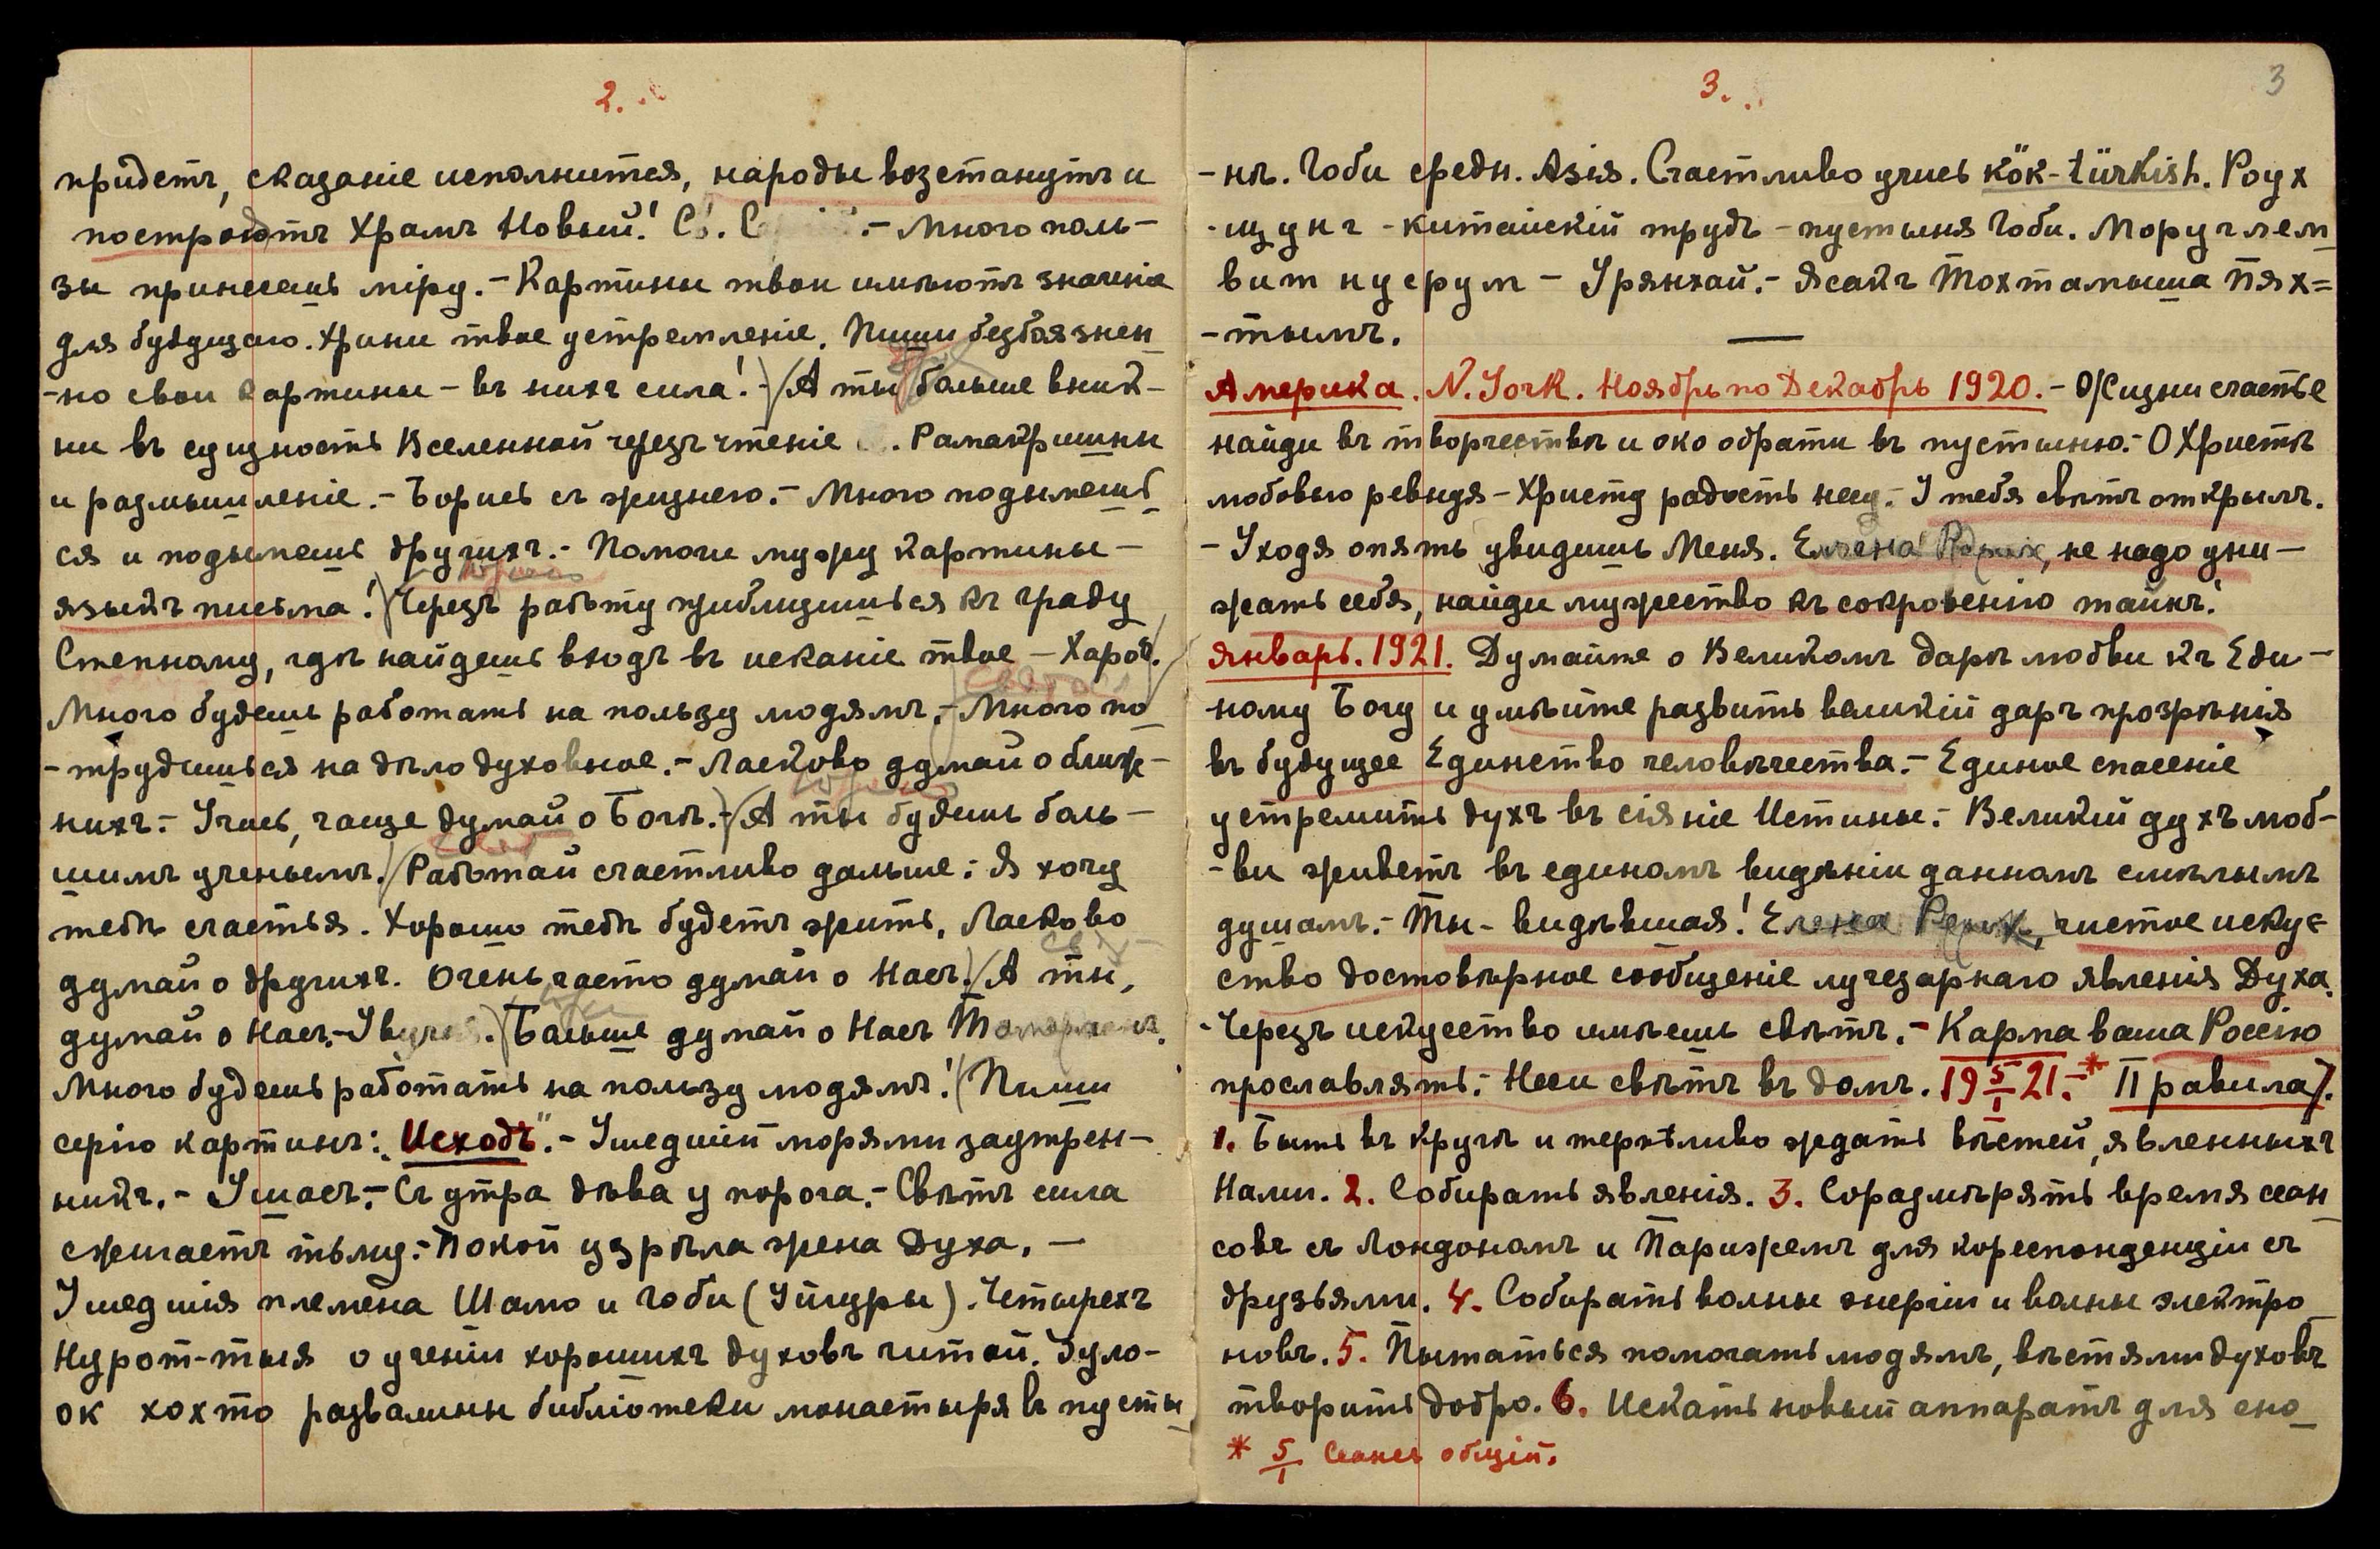 2.
придетъ, сказаніе исполнится, народы возстанутъ и
построютъ Храмъ Новый! Св. – Много поль-
зы принесешь міру. – Картины твои имѣютъ значеніе
для будущаго. Храни твое устремленіе. Пиши безбоязнен
-но свои картины – въ нихъ сила! –)(А ты больше вник-
ни въ сущность Вселенной черезъ чтеніе Рамакришны
и размышленіе. – Борись съ жизнею. – Много подымешь
ся и подымешь другихъ. – Помоги мужу картины –
языкъ письма!)(Черезъ работу приблизишься къ граду
Степному, гдѣ найдешь входъ въ исканіе твое – Харов.
Много будешь работать на пользу людямъ. – Много по
-трудишься на дѣло духовное. – Ласково думай о ближ-
нихъ. – Учись, чаще думай о Богѣ. –)(А ты будешь боль-
шимъ ученымъ.)(Работай счастливо дальше: Я хочу
тебѣ счастья. Хорошо тебѣ будетъ жить, Ласково
думай о другихъ. Очень часто думай о Насъ.)(А ты,
думай о Насъ. – .)(Больше думай о Насъ
Много будешь работать на пользу людямъ!(Пиши
серію картинъ: „Исходъ". – Ушедшій морями заутрен-
никъ. – Ушасъ. – Съ утра дѣва у порога. – Свѣтъ сила
сжигаетъ тьму. – Покой узрѣла жена Духа. –
Ушедшія племена Шамо и Гоби (Уйгуры). Четырехъ
Нурот-тыя о ученіи хорошихъ духовъ читай. Зуло-
ок хохто развалины библіотеки монастыря въ пусты
3.
3
-нѣ. Гоби средн. Азія. Счастливо учись kök-türkish. Роух
-щунг - китайскій трудъ – пустыня Гоби. Моруглем
вит нусрум – Урянхай. – Ясакъ Тохтамыша Пях=
-тымъ.
Америка. N. York. Ноябрь по Декабрь 1920. – О жизни счастье
найди въ творчествѣ и око обрати въ пустыню. – О Христѣ
любовью ревнуя – Христу радость несу. – У тебя свѣтъ открылъ.
– Уходя опять увидишь Меня. Елена Рерих, не надо уни-
жать себя, найди мужество къ сокровенію тайнъ!
Январь. 1921. Думайте о Великомъ дарѣ любви къ Еди-
ному Богу и умѣйте развить великій даръ прозрѣнія
въ будущее Единство человѣчества. – Единое спасеніе
устремить духъ въ сіяніе Истины. – Великій духъ люб-
-ви живетъ въ единомъ видѣніи данномъ смѣлымъ
душамъ. – Ты – видѣвшая! Елена Рерих, чистое искус-
ство достовѣрное сообщеніе лучезарнаго явленія Духа.
-Черезъ искусство имѣешь свѣтъ. – Карма ваша Россію
прославлять. – Неси свѣтъ въ домъ. 19 5/I 21. –* Правила/.
1. Быть въ кругѣ и терпѣливо ждать вѣстей, явленныхъ
Нами. 2. Собирать явленія. 3. Соразмѣрять время сеан
совъ съ Лондономъ и Парижемъ для кореспонденціи съ
друзьями. 4. Собирать волны энергіи и волны электро
новъ. 5. Пытаться помогать людямъ, вѣстями духовъ
творить добро. 6. Искать новый аппаратъ для сно
* 5/I Сеансъ общій.